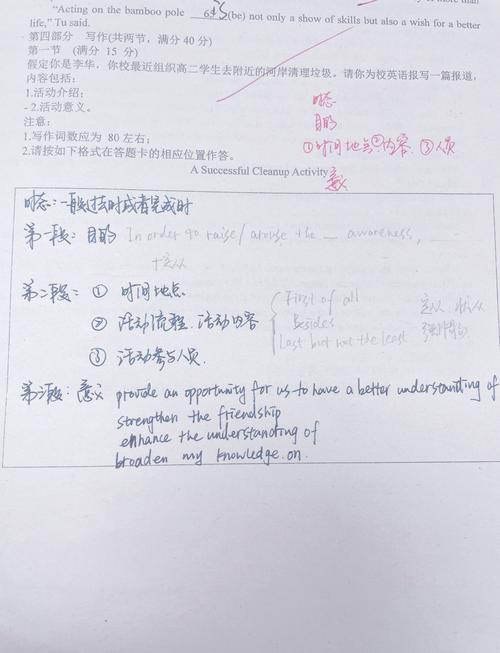 "Acting on the bamboo pole 64 is (be) not only a show of skills but also a wish for a better
life," Tu said.
第四部分 写作(共两节，满分 40 分)
第一节 (满分 15 分)
假定你是李华，你校最近组织高二学生去附近的河岸清理垃圾。请你为校英语报写一篇报道，
内容包括：
1.活动介绍；
2.活动意义。
注意：
1.写作词数应为 80 左右；
2.请按如下格式在答题卡的相应位置作答。
时态
目的
①时间地点②内容 ③人员
意义
A Successful Cleanup Activity
时态：一般过去时或者完成时
第一段：目的 In order to raise/arouse the _ awareness,
+定从
第二段： ① 时间地点
② 活动流程、活动内容
③ 活动参与人员.
First of all
Besides
Last but not the least
定从 状从
第三段：意义 provide an opportunity for us to have a better understanding of
strengthen the friendship
enhance the understanding of
broaden my knowledge on.